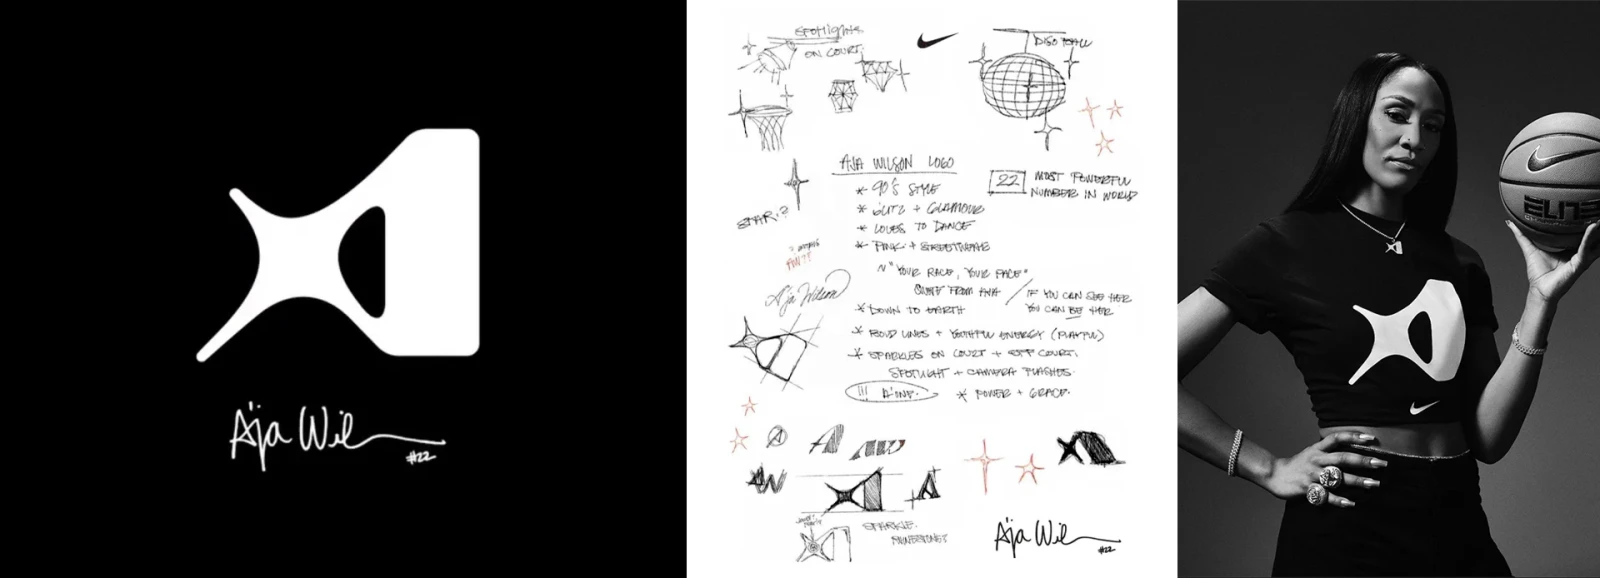 A'ja Wil
#22
SPOTLIGHTS
ON COURT.
DISO BALL
AJA WILSON LOGO
* 90'S STYLE
* GLITZ + GLAMOUR
* LOVES TO DANCE
* PINK + STREETWEAR
22
MOST POWERFUL
NUMBER IN WORLD
STAR?
"YOUR RACE, YOUR PACE"
QUOTE FROM AJA
IF YOU CAN SEE HER
YOU CAN BE HER
A'ja Wilson
* DOWN TO EARTH
* BOLD LINES + YOUTHFUL ENERGY (PLAYFUL)
* SPARKLES ON COURT + OFF COURT.
SPOTLIGHT + CAMERA FLASHES.
!!! A'ONE.
* POWER + GRACE.
A AW
AW
A
SPARKLE.
A'ja Wil
#22
ELITE